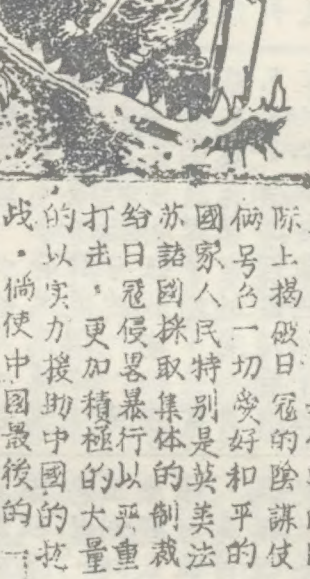 际上揭破日寇的陰謀伎
俩号召一切爱好和平的
國家人民特别是英美法
苏諸國採取集体的制裁
给日寇侵畧暴行以严重
打击。更加積極的大量
的以实力援助中國的抗
战。倘使中国最後的一